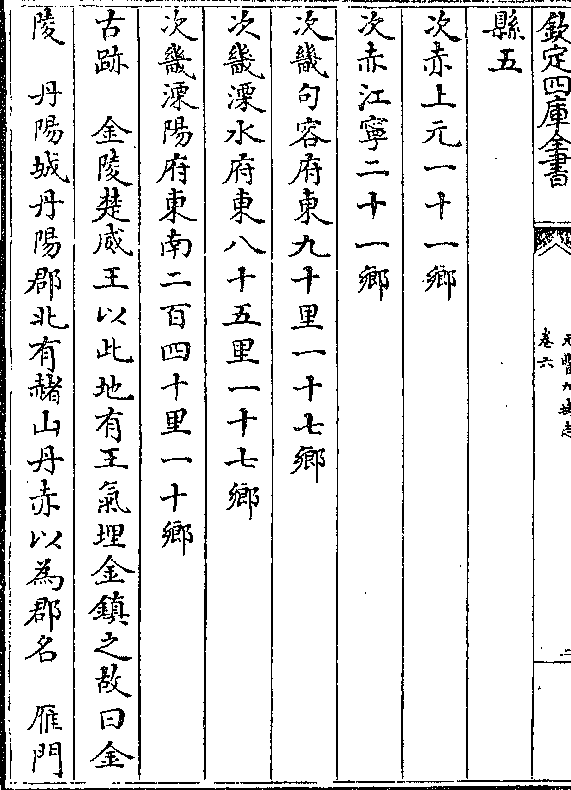 欽定四庫全書
元豐九域志
卷六
二
縣五
次赤上元一十一鄉
次赤江寧二十一鄉
次畿句容府東九十里一十七鄉
次畿溧水府東八十五里一十七鄉
次畿溧陽府東南二百四十里一十鄉
古跡　金陵楚威王以此地有王氣埋金鎮之故曰金
陵　丹陽城丹陽郡北有赭山丹赤以為郡名　雁門